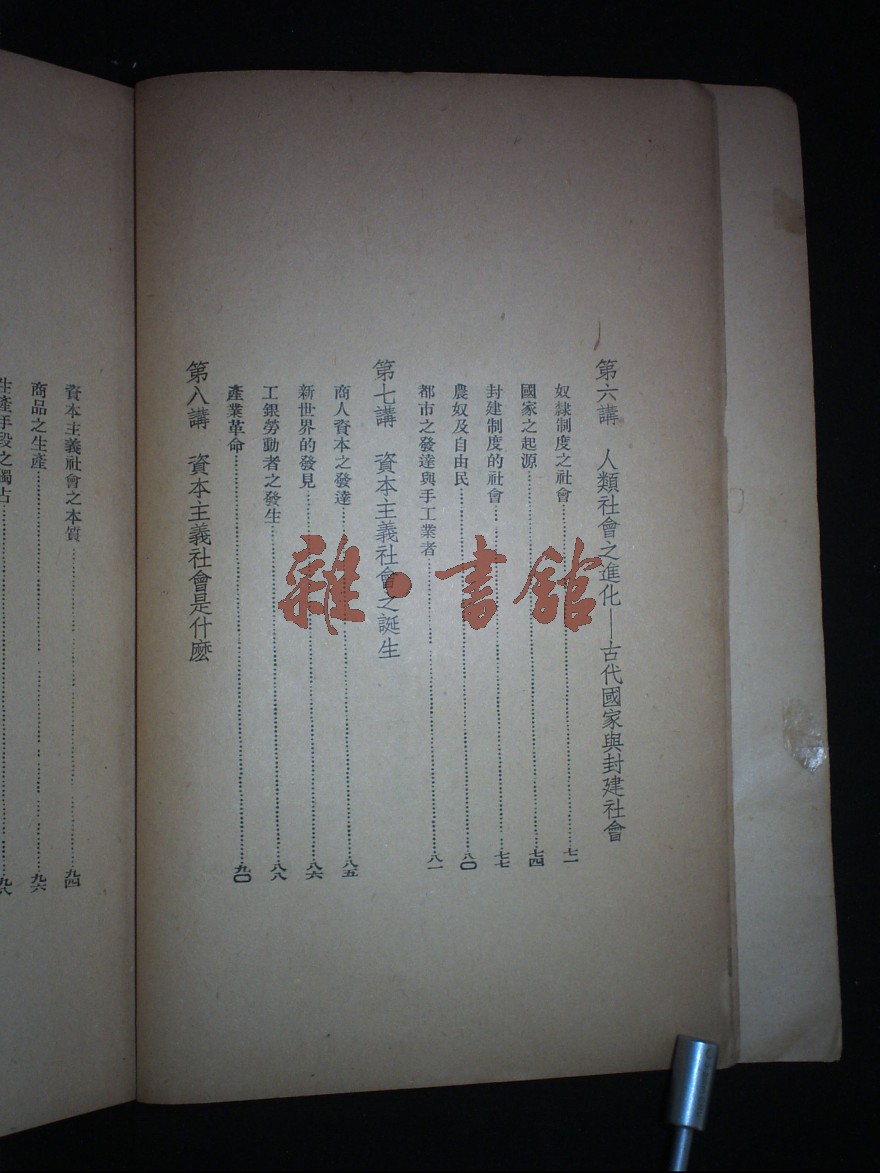 第六講 人類社會之進化—古代國家與封建社會
奴隸制度之社會⋯⋯七一
國家之起源⋯⋯七四
封建制度的社會⋯⋯七七
農奴及自由民⋯⋯八〇
都市之發達與手工業者⋯⋯八一
第七講 資本主義社會之誕生
商人資本之發達⋯⋯八五
新世界的發見⋯⋯八六
工銀勞動者之發生⋯⋯八八
產業革命⋯⋯九〇
第八講 資本主義社會是什麽
資本主義社會之本質⋯⋯九四
商品之生產⋯⋯九六
生產手段之獨占⋯⋯九八
雜·書館